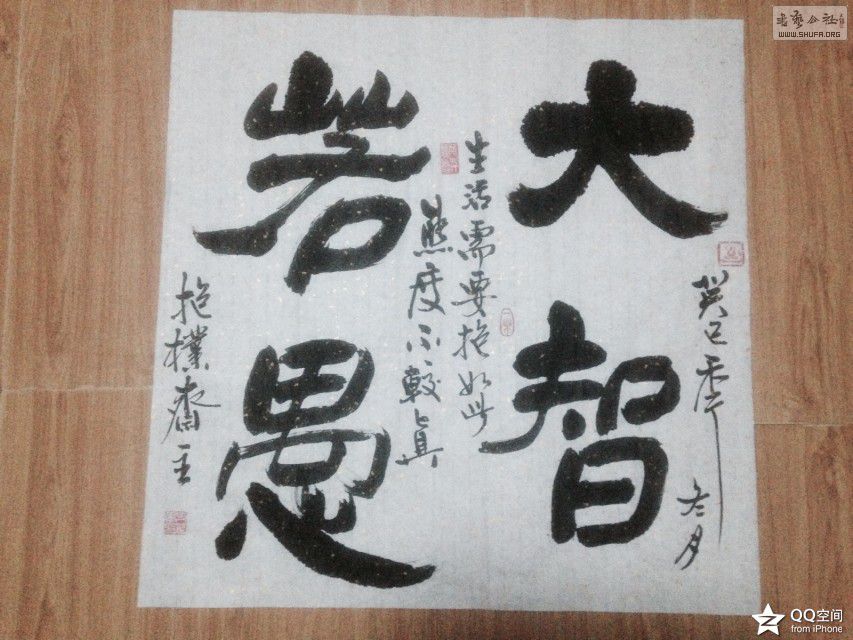 大智
若愚
癸巳年冬月
生活需要抱如此
态度不較真
抱樸齋主
WWW.SHUFA.ORG
QQ空间
from iPhone